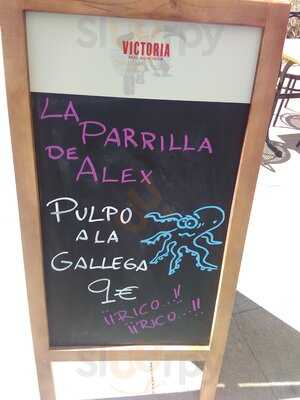 VICTORIA
LA
PARRILLA
DE
ALEX
PULPO
A LA
GALLEGA
9€
¡¡RICO...!!
¡¡RICO...!!